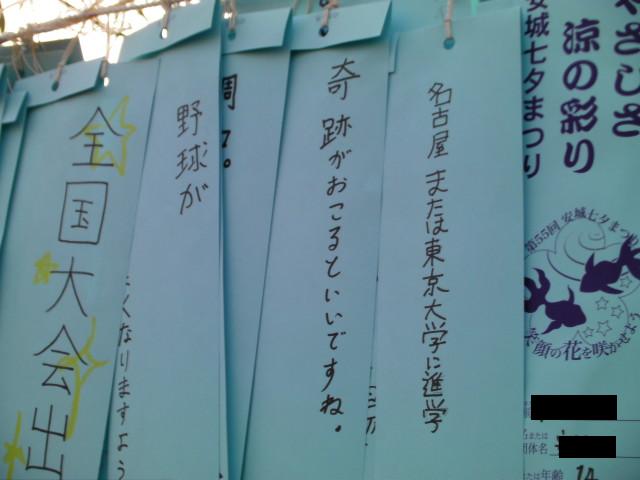 やさしさ
涼の彩り
安城七夕まつり
第55回 安城七夕まつり
笑顔の花を咲かせよう
団体名
年齢 14
名古屋または東京大学に進学
奇跡がおこるといいですね。
野球が
くなりますよう
全国大会出